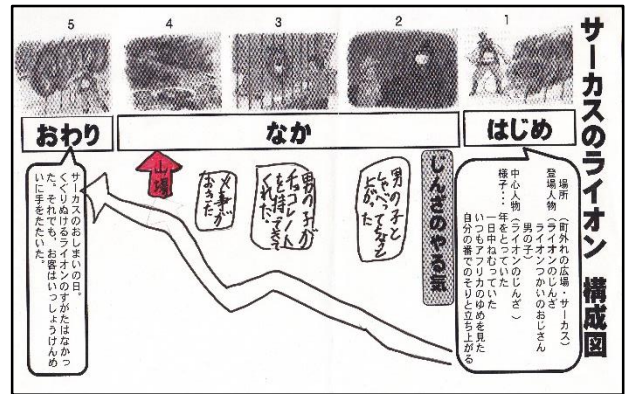 サーカスのライオン 構成図
1
2
3
4
5
はじめ
なか
おわり
場所 (町外れの広場・サーカス)
登場人物 (ライオンのじんざ
ライオンつかいのおじさん
男の子)
中心人物 (ライオンのじんざ)
様子・・・年をとっていた
一日中ねむっていた
いつもアフリカのゆめを見た
自分の番でのそりと立ち上がる
じんざのやる気
男の子と
しゃべって
上がった。
男の子が
チョコレート
を持ってきて
くれた。
火事が
おきた
山場
サーカスのおしまいの日。
くぐりぬけるライオンのすがたはなかっ
た。それでも、お客はいっしょうけんめ
いに手をたたいた。